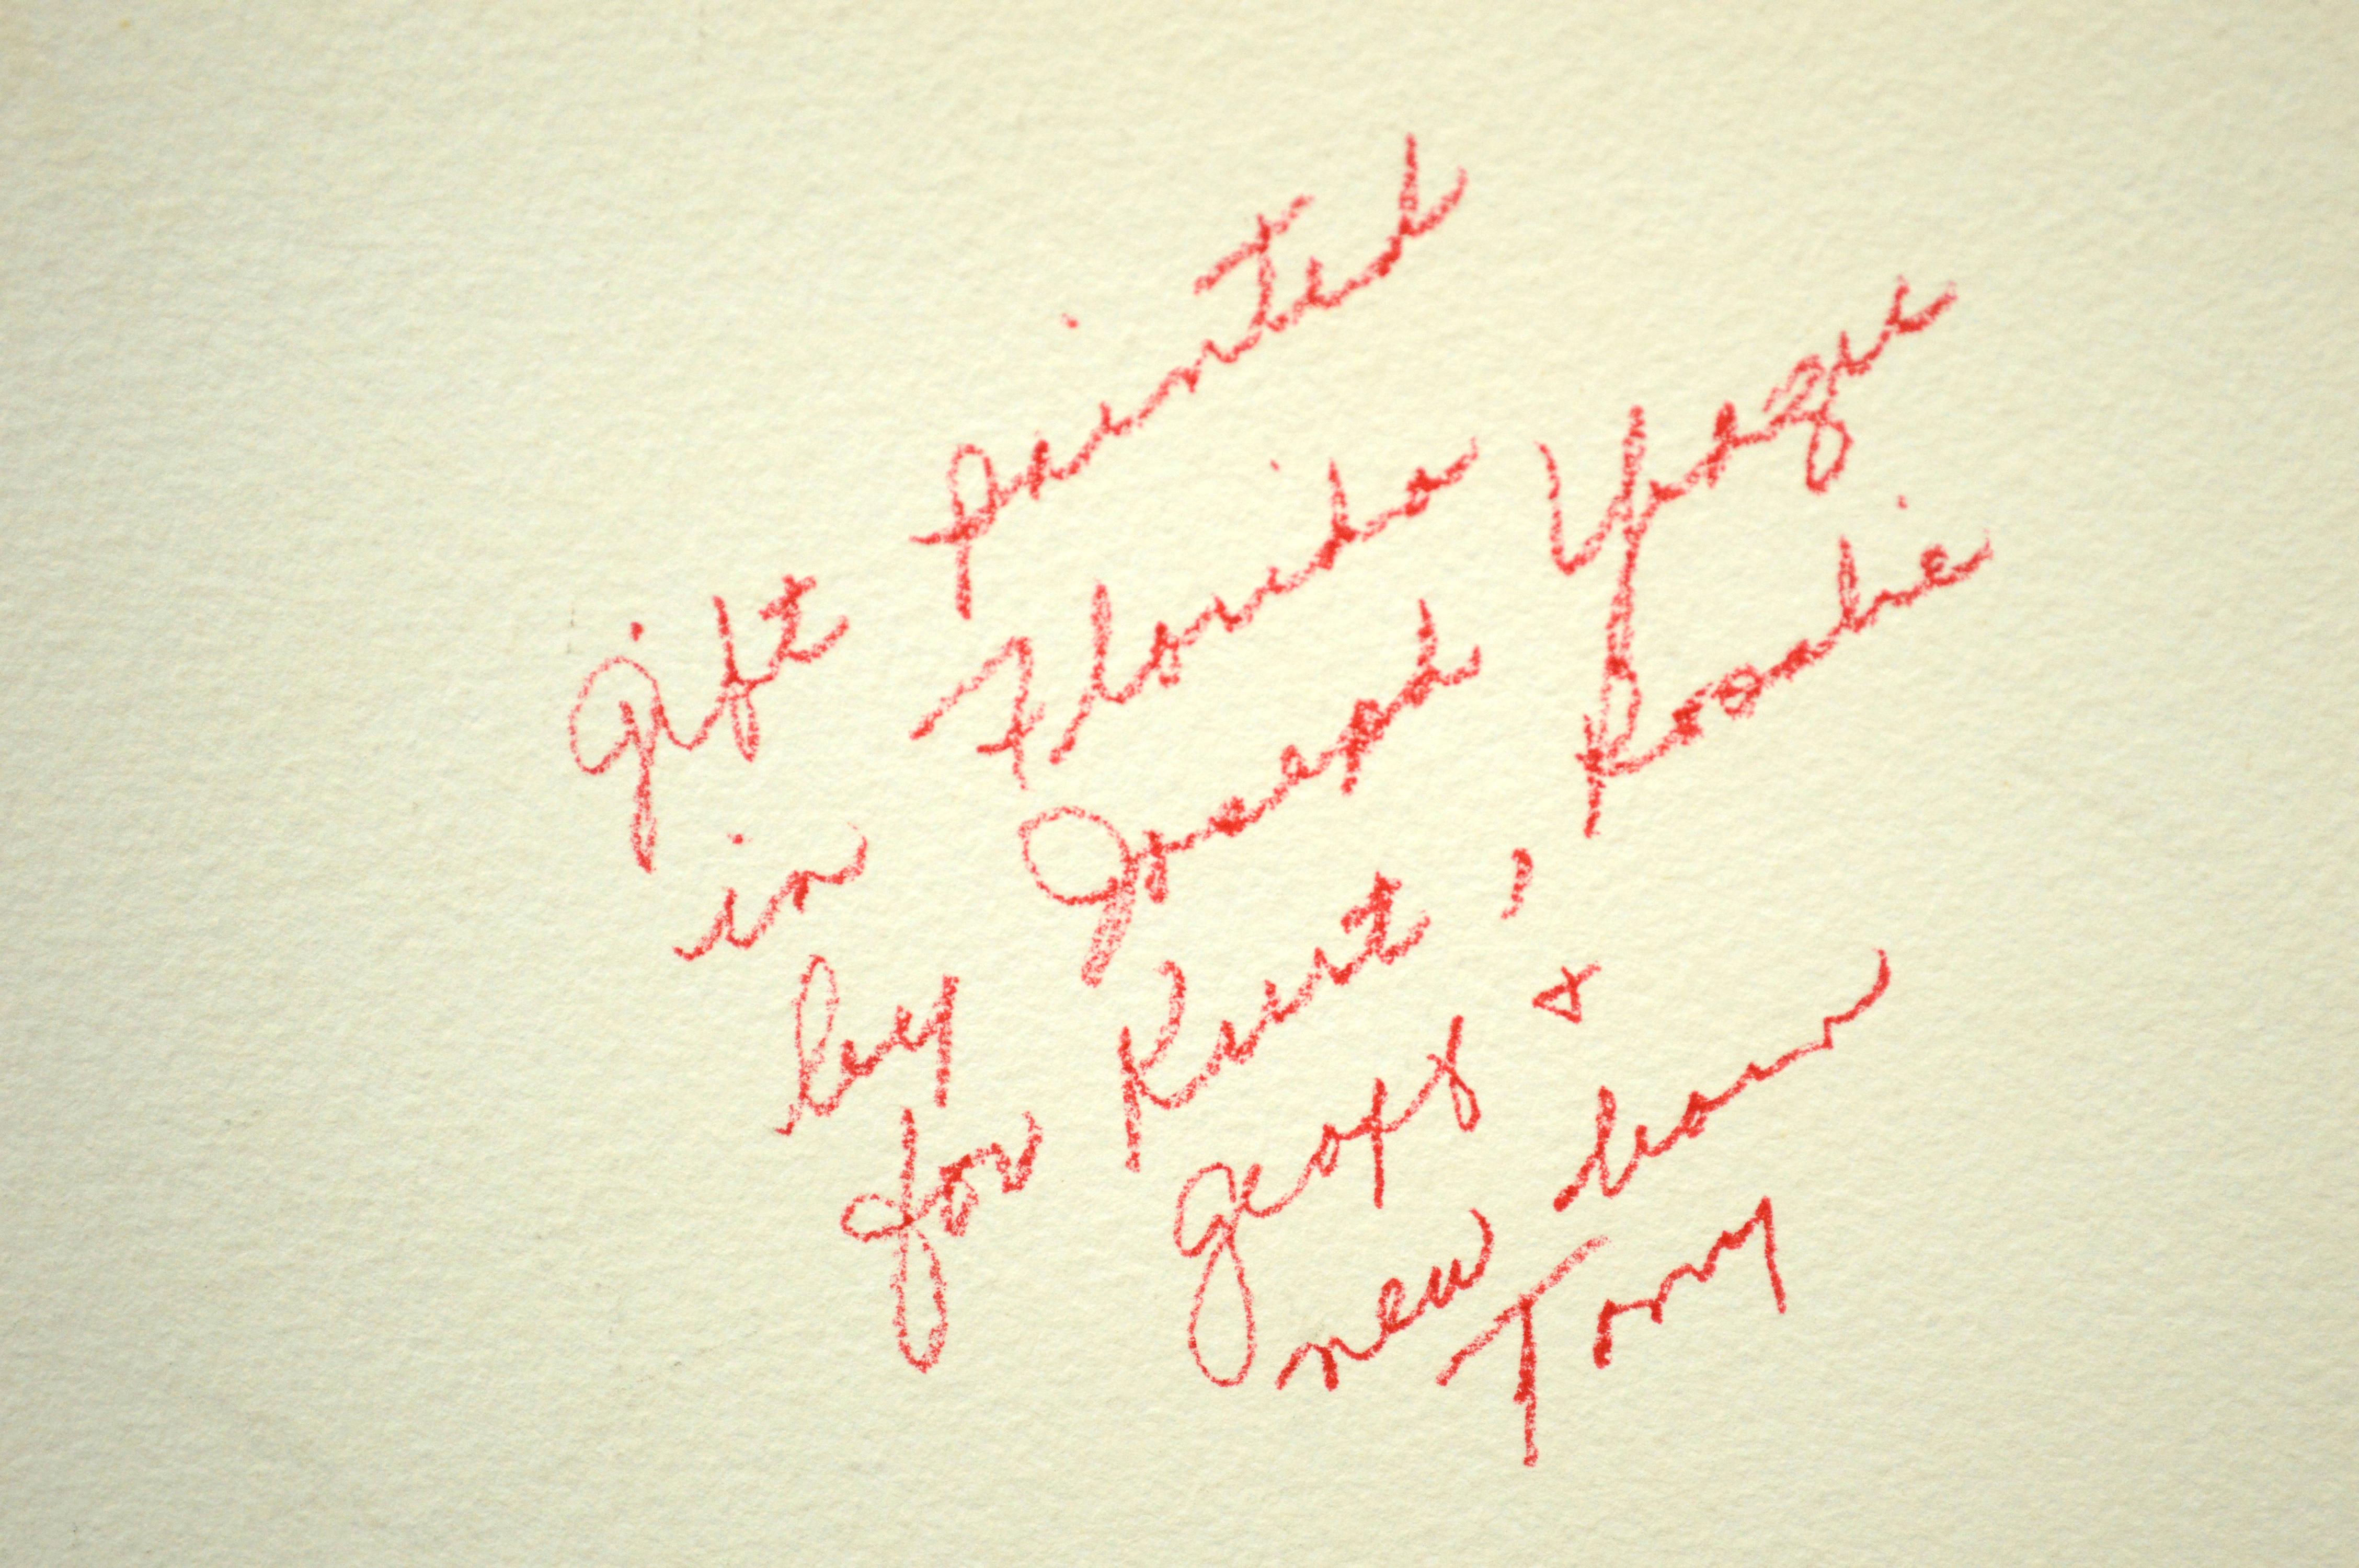 Gift painted
in Florida
by Joseph Yeagie
for Kurt, Rosalie
Geoff &
new born
Tony